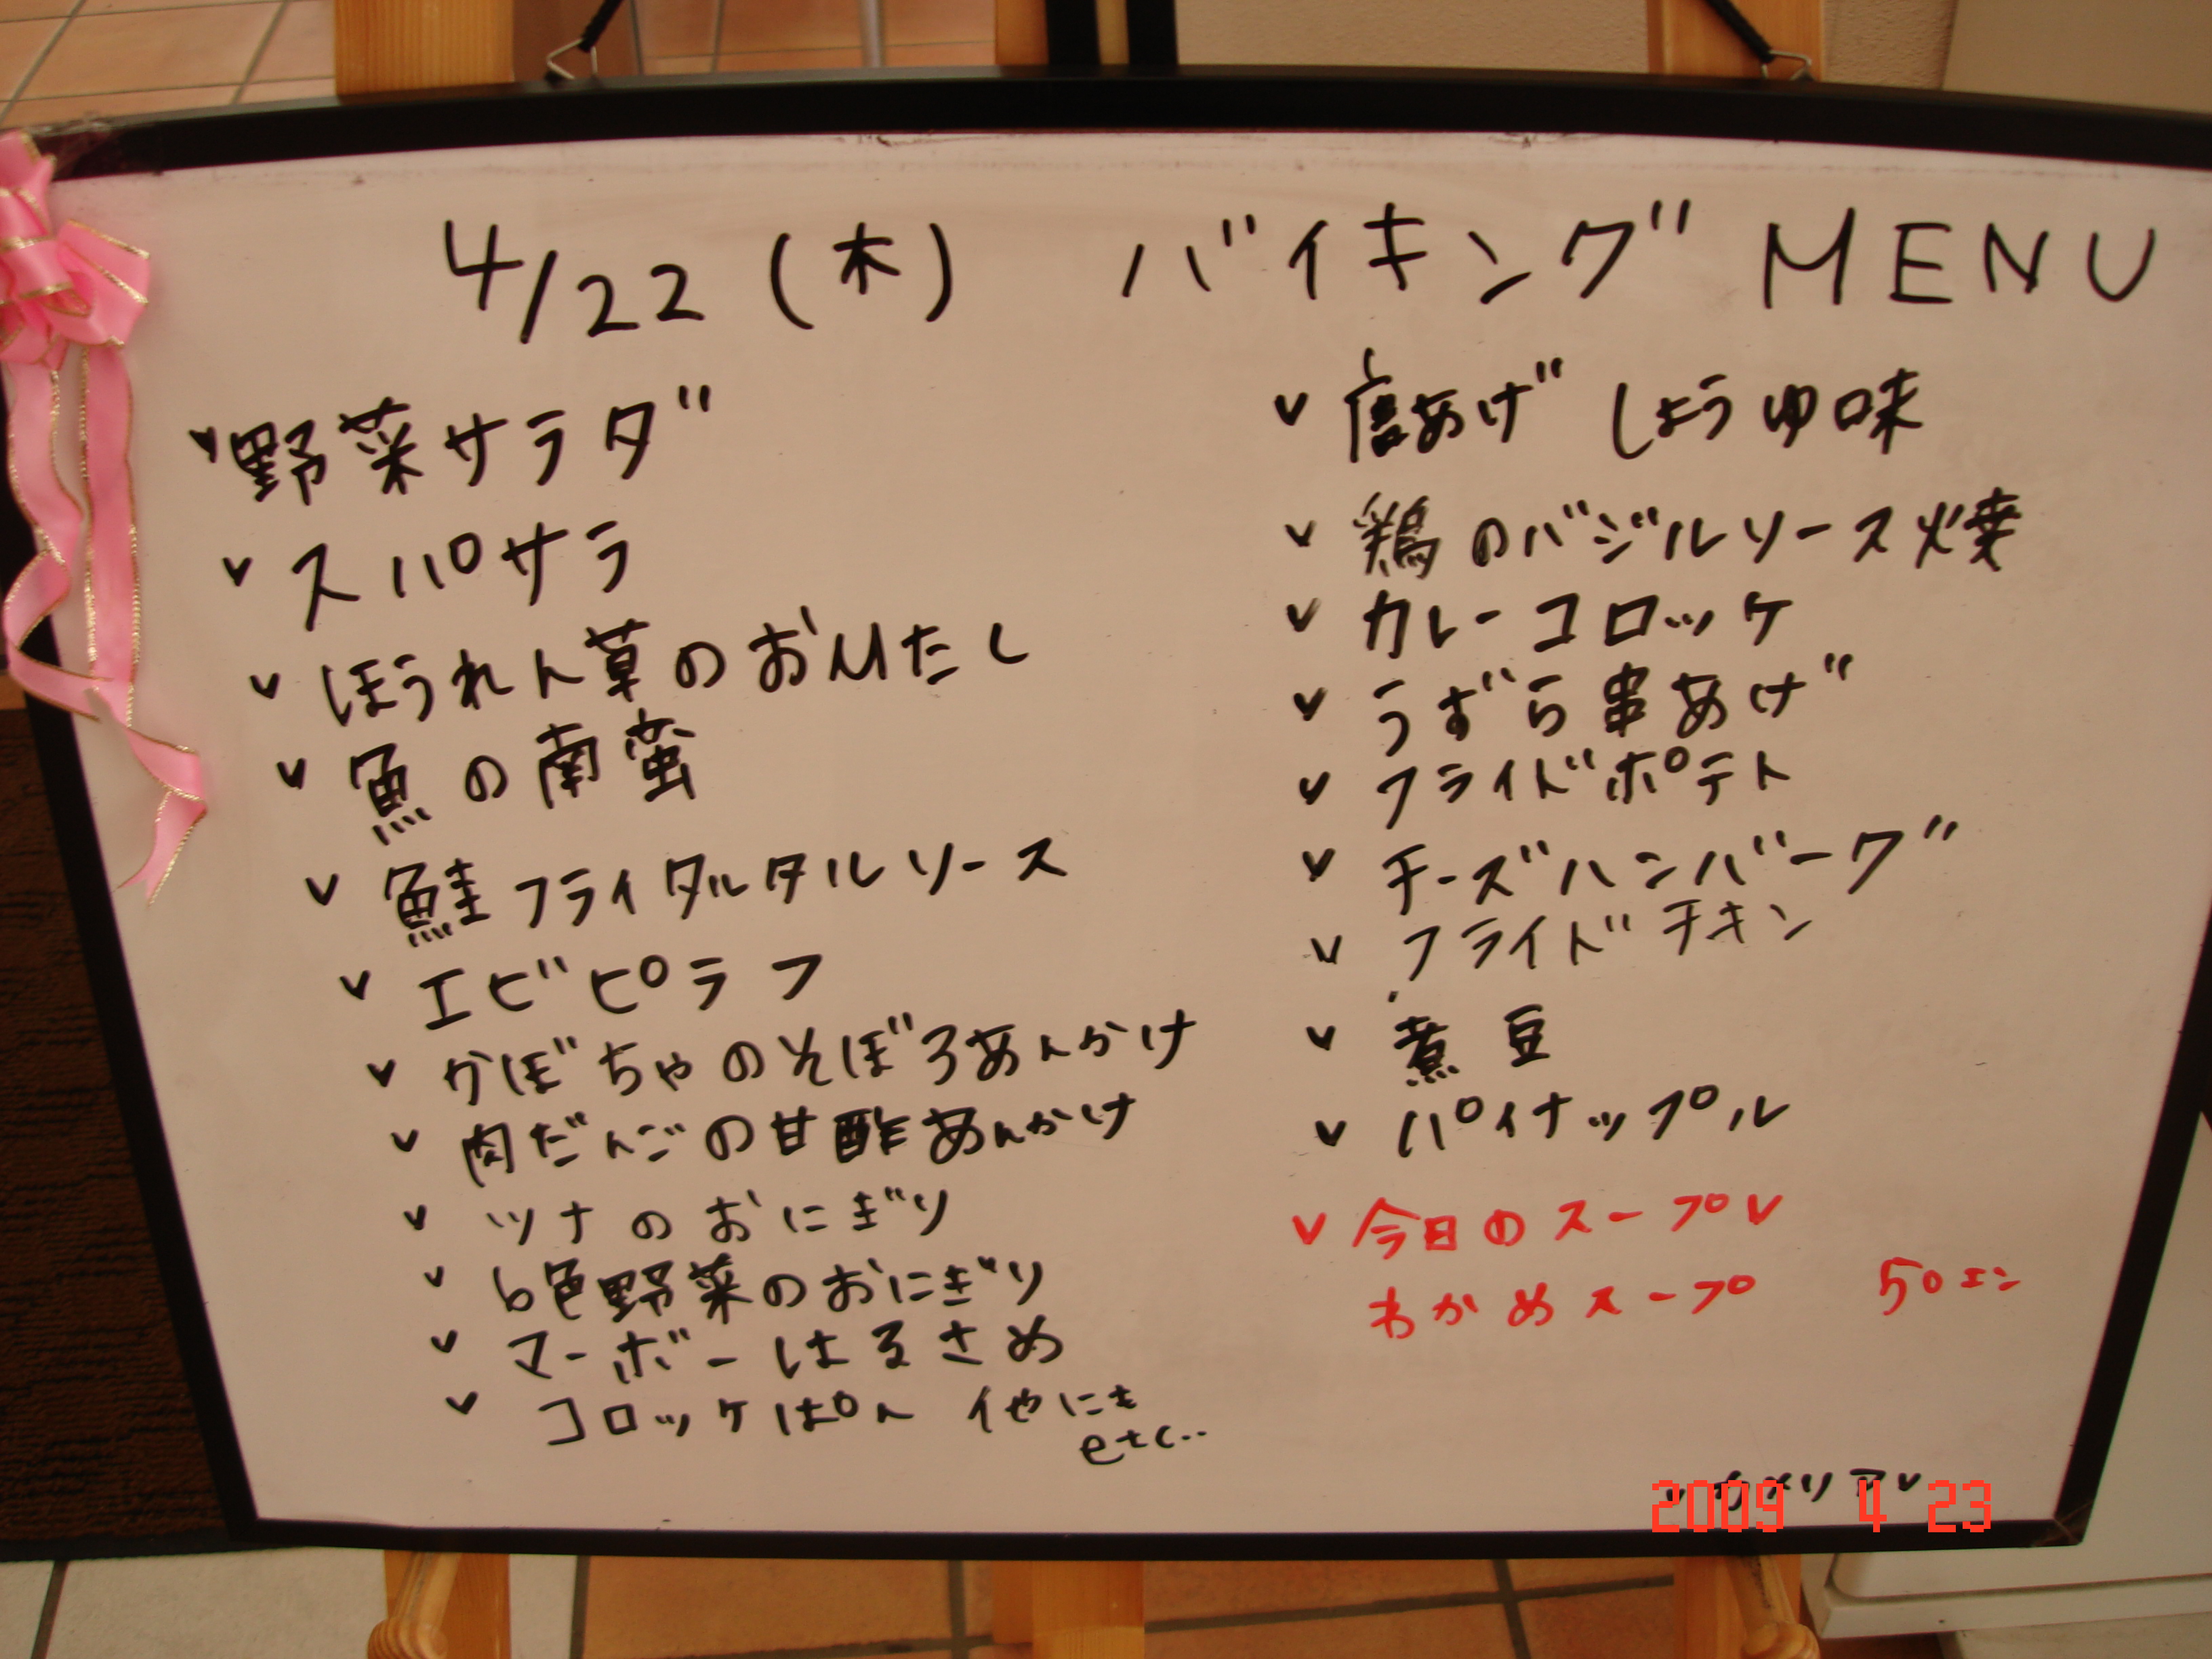 4/22(木) バイキングMENU
野菜サラダ
スパサラ
ほうれん草のおひたし
魚の南蛮
鮭フライタルタルソース
エビピラフ
かぼちゃのそぼろあんかけ
肉だんごの甘酢あんかけ
ツナのおにぎり
6色野菜のおにぎり
マーボーはるさめ
コロッケぱん 他にも
etc..
唐あげ しょうゆ味
鶏のバジルソース焼
カレーコロッケ
うずら串あげ
フライドポテト
チーズハンバーグ
フライドチキン
煮豆
パイナップル
今日のスープ
わかめスープ 50エン
カメリア
2009 4 23